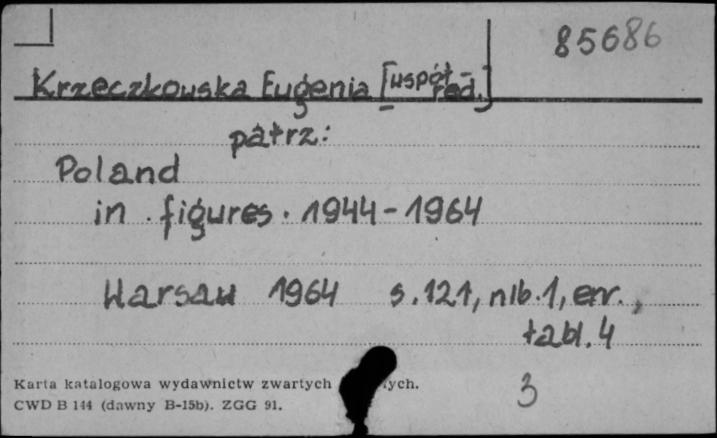 85686
Krzeczkowska Eugenia [współ-
red.]
patrz:
Poland
in figures. 1944-1964
Warsaw 1964 s. 121, nlb. 1, err.,
tabl. 4
Karta katalogowa wydawnictw zwartych
CWD B 144 (dawny B-15b). ZGG 91.
3